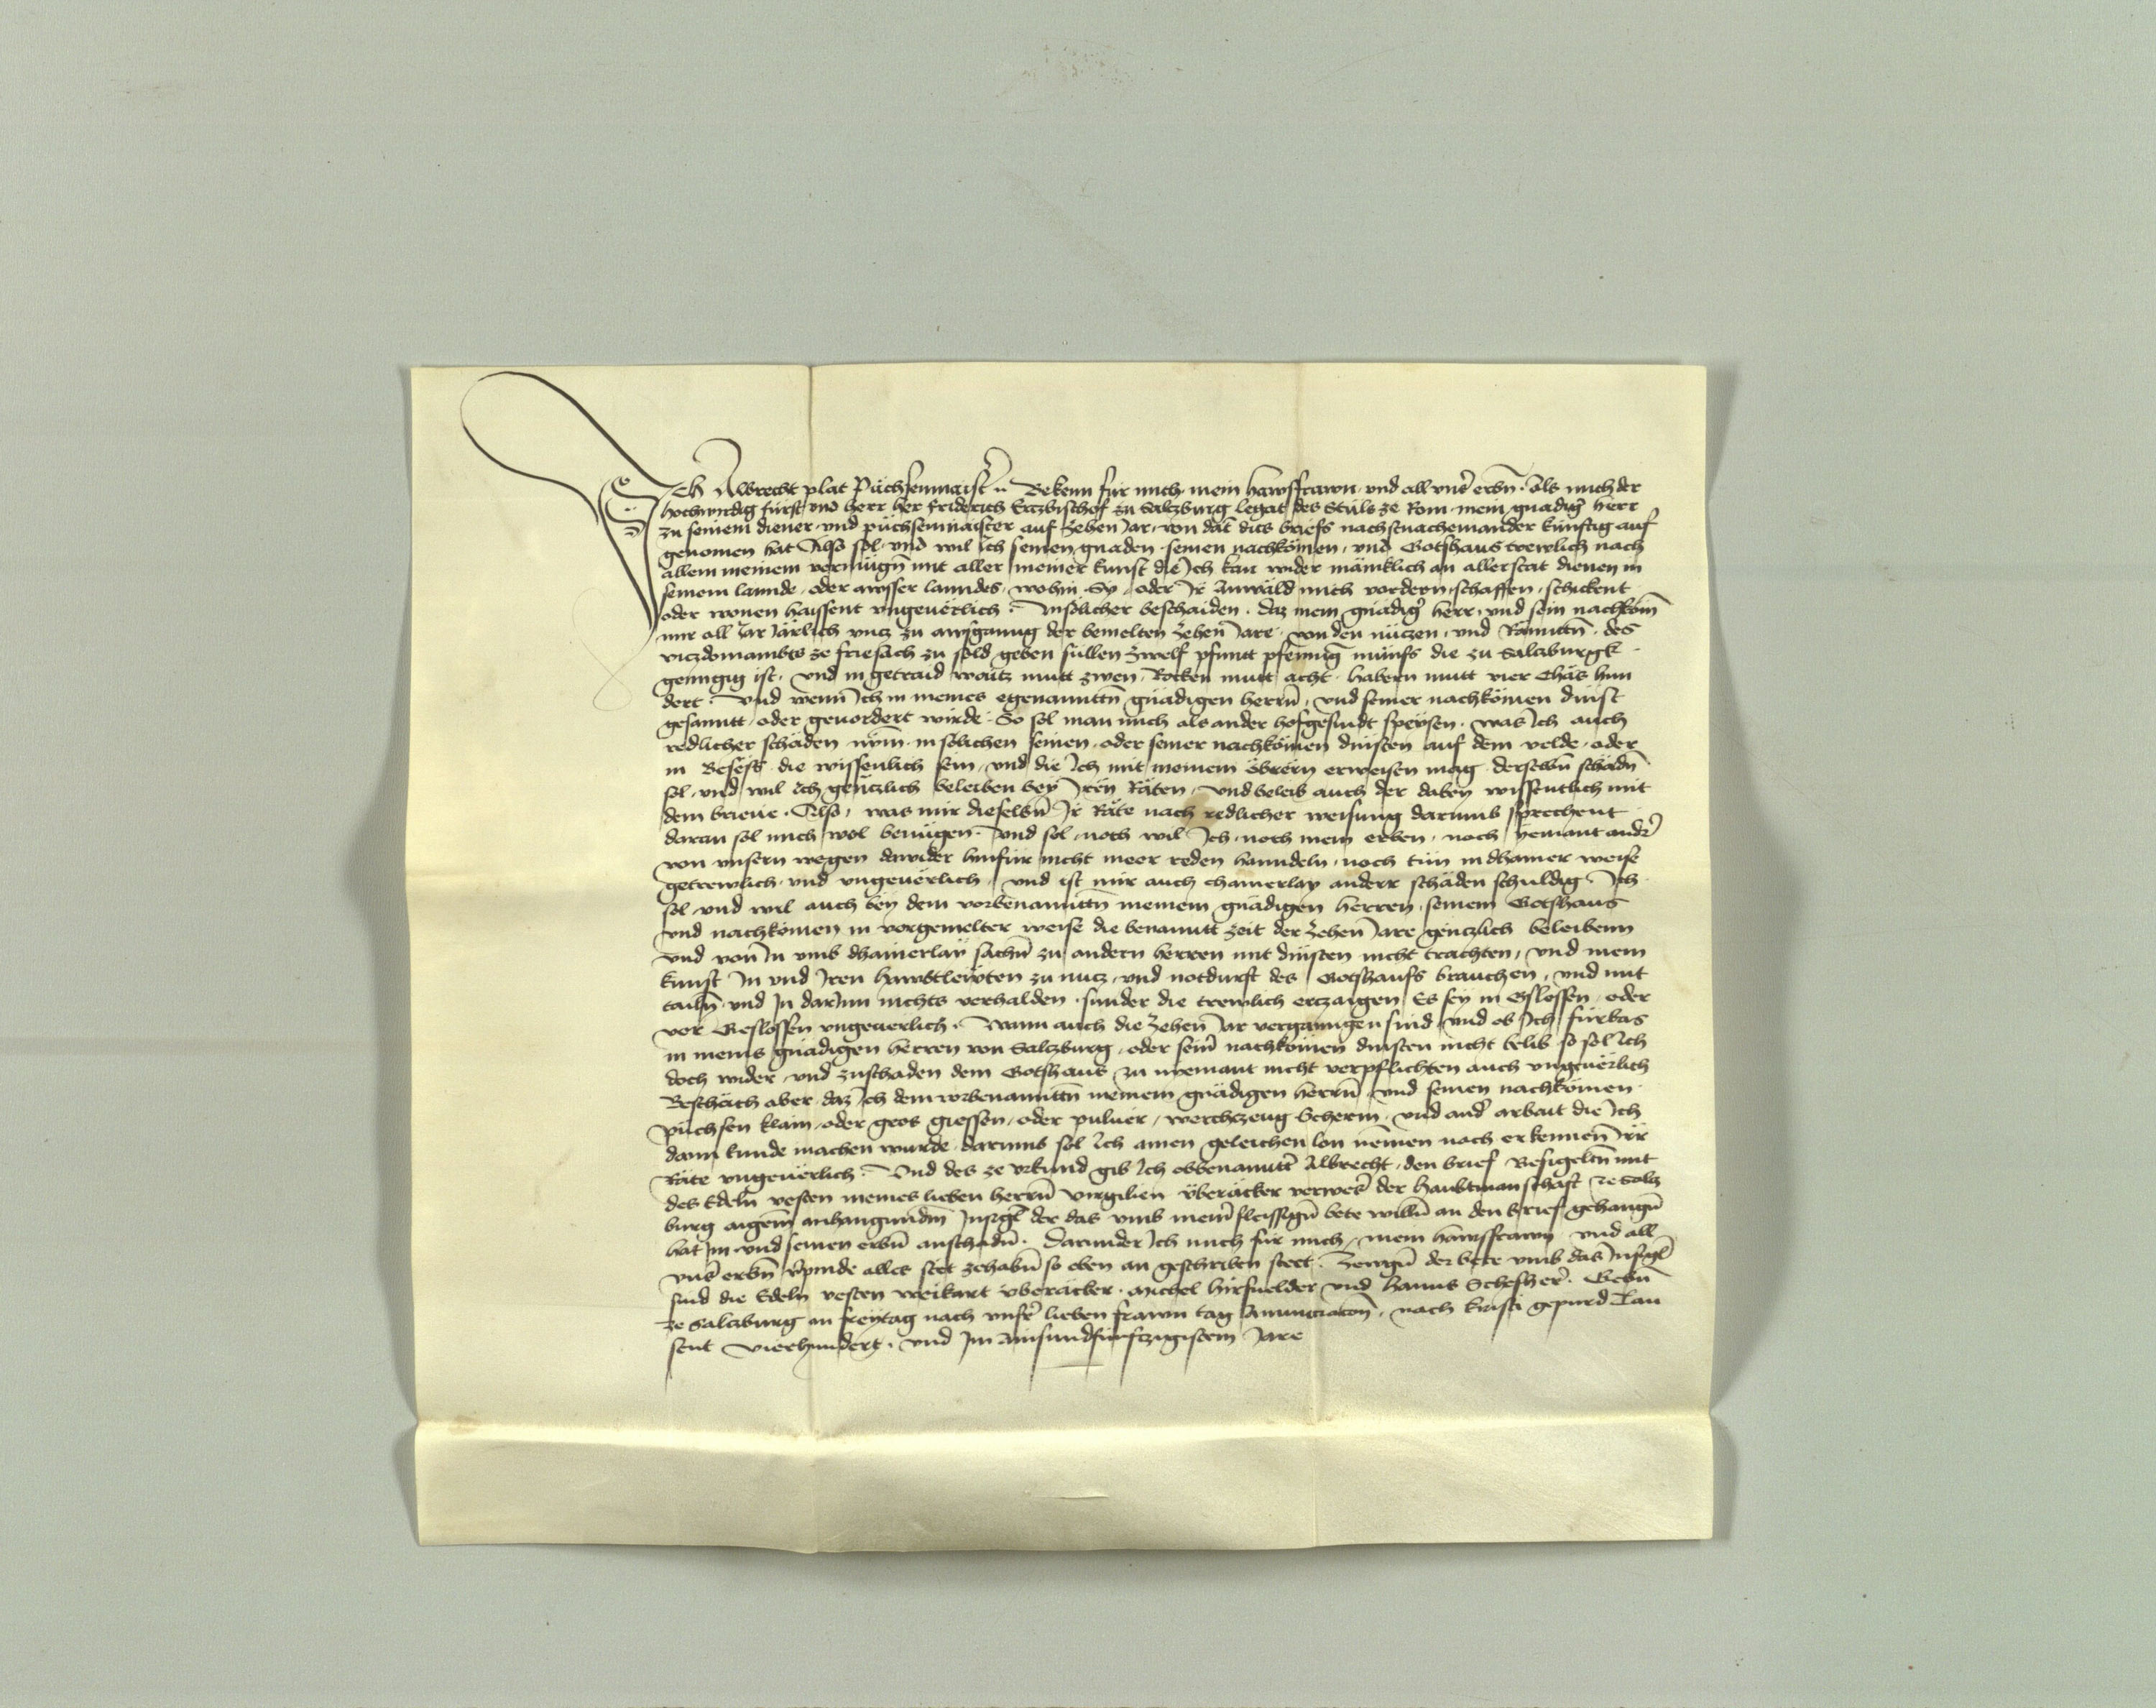 Ich Albrecht plat Püchsenmaist̄ Bekenn für mich mein hawsfrawn und all uns̄ erbn̄ Als mich der
hochwirdig fürst und herr her Friderich Erczbischof zu Salczburg legat des Stuls ze Rom mein gnadiḡ herr
zu seinem diener und püchsenmaister auf zehen Jar von dat dics briefs nachstnacheinander künftig auf
genomen hat Also sol und wil Ich seinen gnaden seinen nachkömen und Gotshaus trewlich nach
allem meinem vermügn̄ mit aller meiner kunst die Ich kan wider mäniklich an aller stat dienen in
seinem lannde oder awsser lanndes wohin Sy oder Ir Anwäld mich vordern schaffen schickent
oder wonen haissent ungeuërlich In sölicher beschaiden daz mein gnädiḡ herr und sein nachköm̄
mir all Jar Järlich uncz zu awsganng der bemelten zehen̄ Jare von den nüczen und Rännttn̄ des
viczdomambts ze Friesach zu sold geben süllen zwelf pfunt pfenniḡ münss die zu Salczburgk
genngig ist und in getraid waitz mutt zwen Rocken mutt acht habern mutt vier Chäs hun
dert Und wenn̄ Ich in meines egenanntn̄ gnädigen herrn̄ und seiner nachkömen dinst
gesanntt oder geuordert wirde So sol man mich als ander hofgesindt speysen was Ich auch
redlicher schäden nem in sölichen seinen oder seiner nachkömen dinsten auf dem velde oder
in Besëss die wissenlich sein und die Ich mit meinem öbrërn erweisen mag derselbn̄ schädn̄
sol und wil Ich gënczlich beleiben bey Iren Räten und beleib auch der dabey wissentlich mit
dem brieue Also was mir dieselbn̄ Ir Räte nach redlicher weisung darumb sprechent
daran sol mich wol benügen und sol noch wil Ich noch mein erben noch yemant andr̄
von unsern wegen dawider hinfür nicht meer reden hanndeln noch tün in dhainer weise
getrewlich und ungeuërlich und ist mir auch chainerlay anderr schäden schuldig Ich
sol und wil auch bey dem vorbenanntn̄ meinem gnädigen herren seinem Gotshaus
und nachkömen in vorgemelter weise die benanntt zeit der zehen̄ Jare gënczlich beleibenn
und von̄ In umb dhainerlay sachn̄ zu andern herren mit dinsten nicht trachten und mein
kunst In und Iren hawbtlewten zu nucz und notdurft des Gotshauss brauchen und mit
tailn̄ und In darInn nichts verhalden sunder die trewlich erczaigen Es sey in Gslossen oder
vor Geslossen ungeuerlich Wann auch die zehen̄ Jar vergangen sind und ob Ich fürbas
in meins gnädigen herren von Salczburg oder sein̄ nachkömen dinsten nicht belib so sol Ich
doch wider und zuschaden dem Gotshaus zu nyemant nicht verpflichten auch ungeuërlich
Beschäch aber daz Ich dem vorbenanntn̄ meinem gnädigen herrn̄ und seinen nachkömen
püchsen klain oder gros giessen oder puluer werchczeug scherm und and̄ arbait die Ich
dann kunde machen wurde darumb sol Ich ainen geleichen lon nemen nach erkennen̄ Ir
Räte ungeuërlich Und des ze urkund gib Ich obbenantt̄ Albrecht den brief Besigeltn̄ mit
des Edeln̄ vesten meines lieben herrn̄ Virgilien Überäcker verwes̄ der haubtmanschaft ze Salcz
burg aigem̄ anhangunndm̄ Insigl̄ der das umb mein̄ fleissign̄ bete willn̄ an den brief gehangn̄
hat Im und seinen erbn̄ anschadn̄ Darunder Ich mich für mich mein hawsfrawn und all
uns̄ erbn̄ v̄pinde alles stet zehabn̄ so oben an geschriben steet Zewgn̄ der bete umb das Insigl̄
sind die Edeln vesten Weikart Überäcker Michel Hirsuelder und Hanns Scheshēr Gebn̄
ze Salczburg an freytag nach unsr̄ lieben frawn tag Anunciacon̄ nach kristi gepurd Tau
sent vierhundert und Im ainsundfunfczigistem Jare